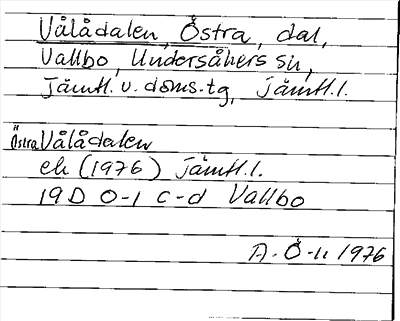 Vålådalen, Östra, dal,
Vallbo, Undersåkers sn,
Jämtl. v. doms.tg, Jämtl.l.
Östra Vålådalen
ek (1976) Jämtl.l.
19D 0-1 c-d Vallbo
A. Ö-n 1976